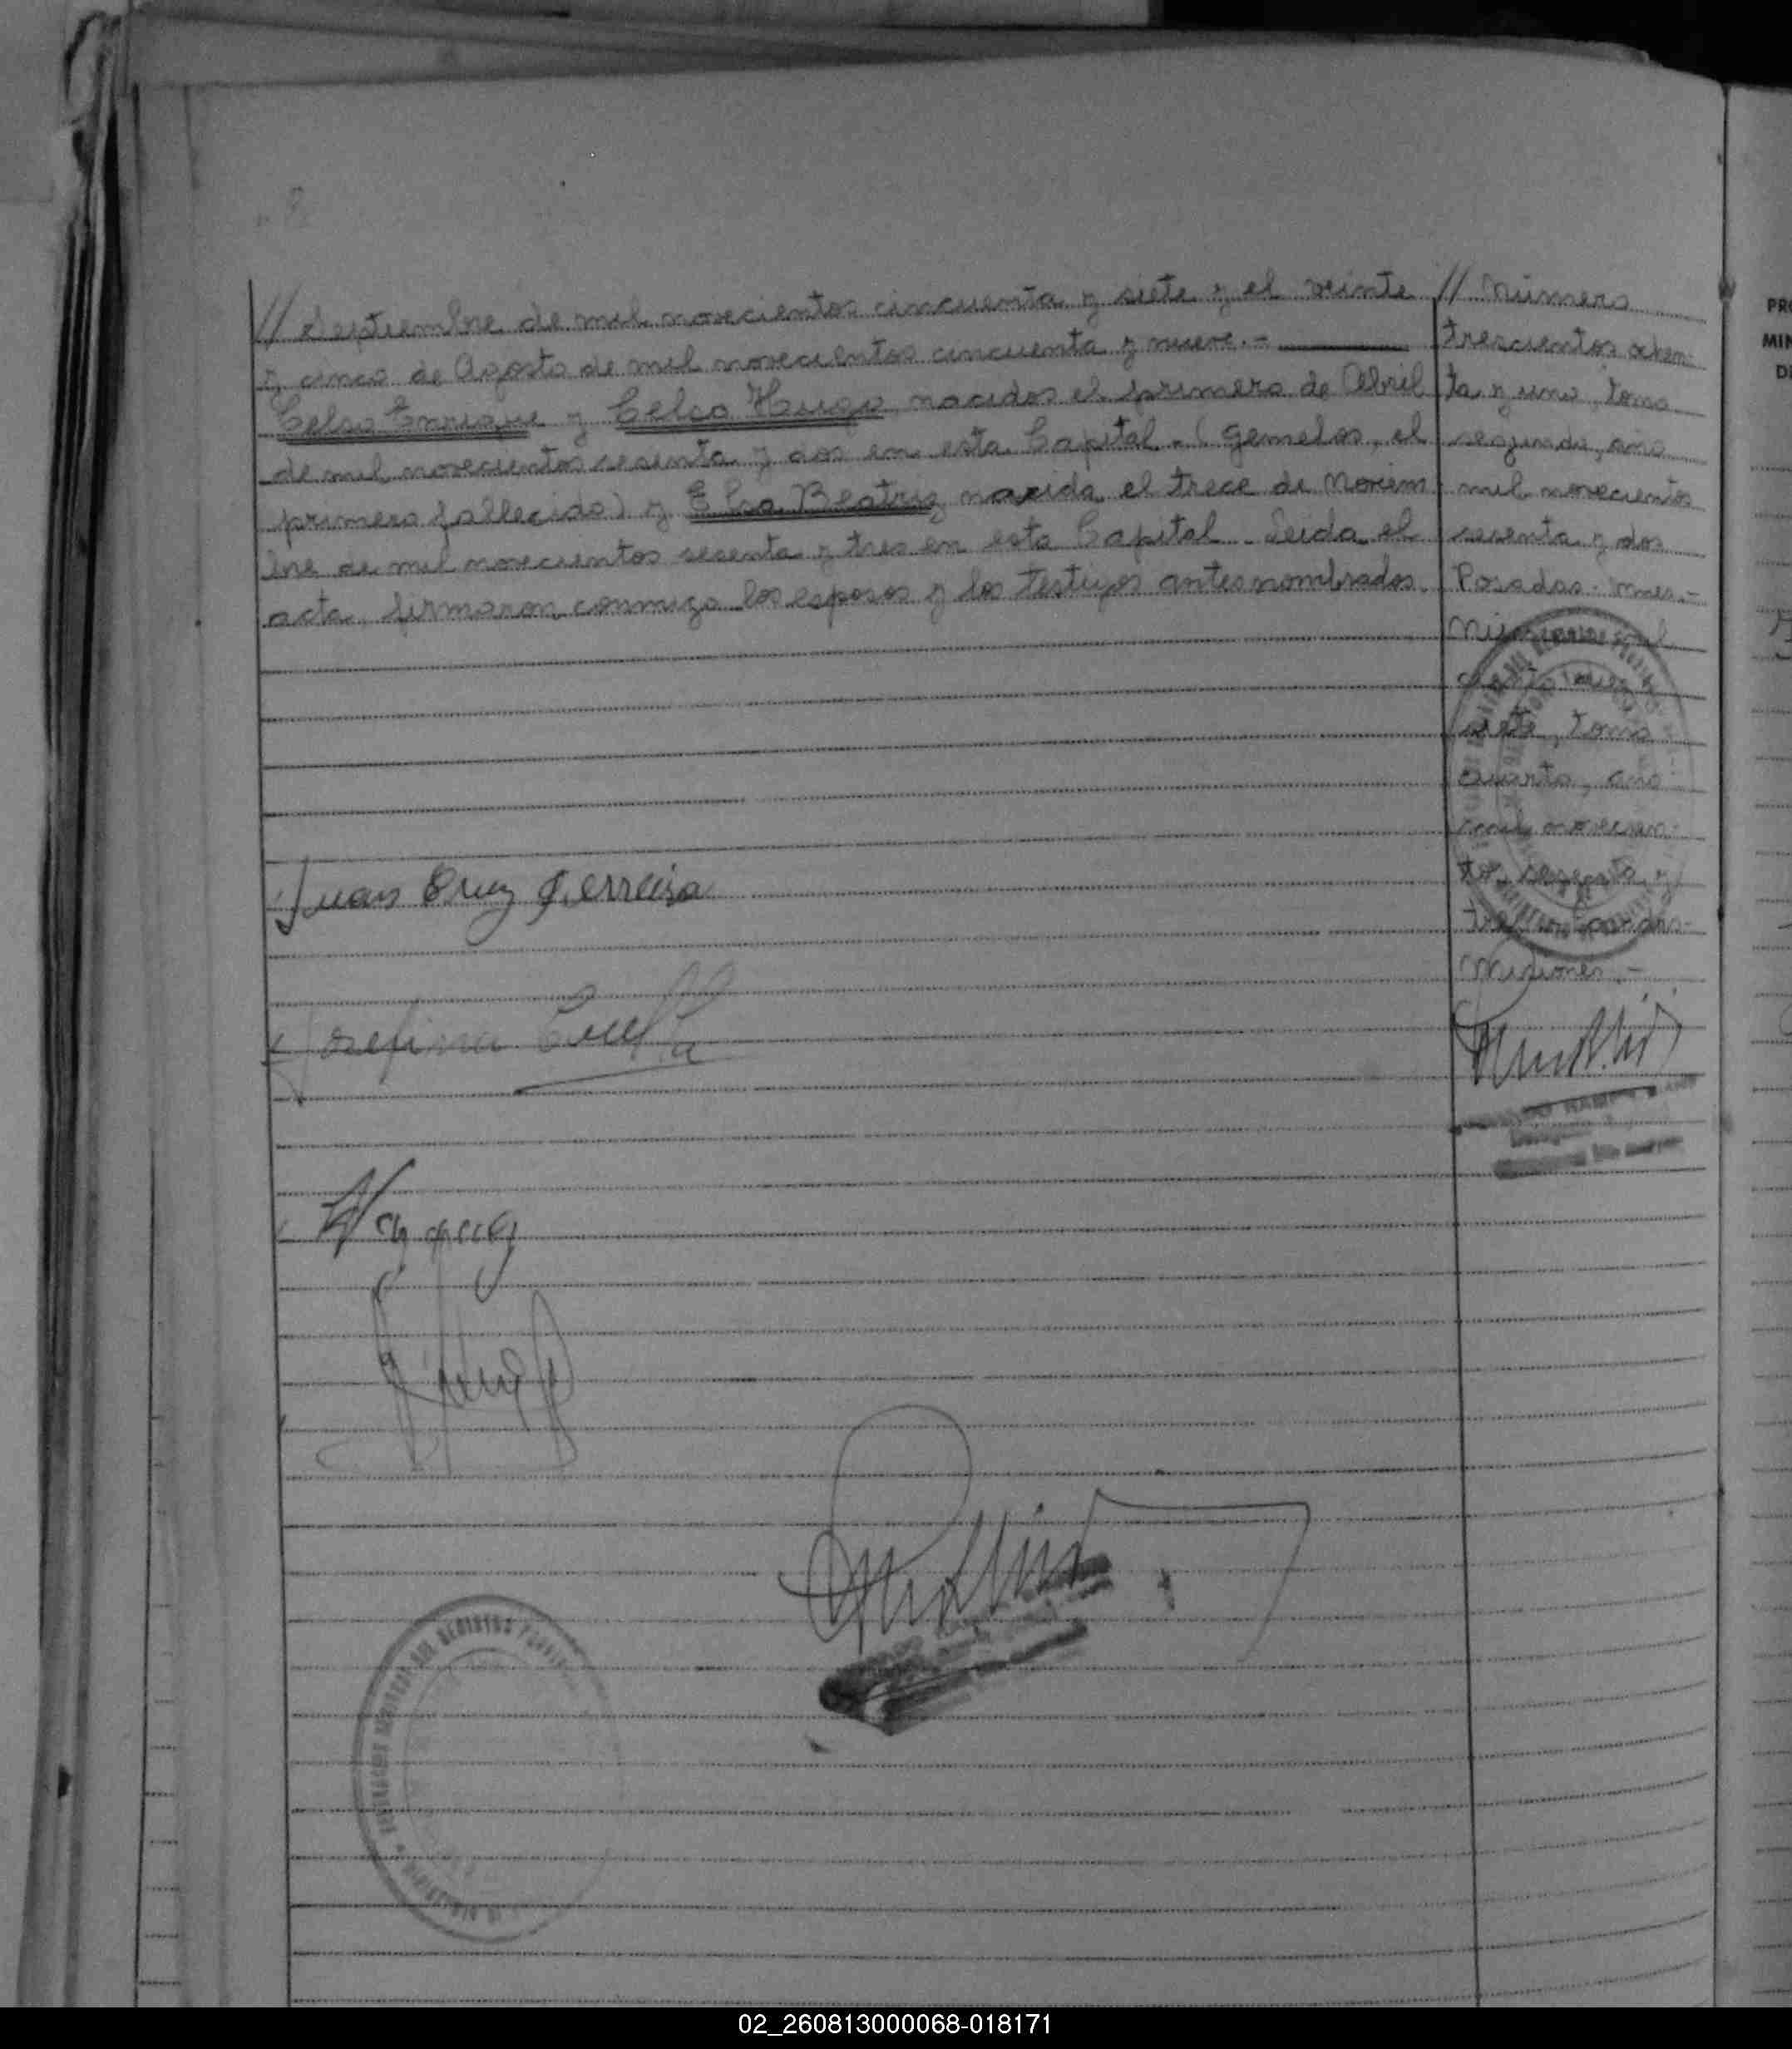 // Septiembre de mil novecientos cincuenta y siete y el veinte
y cinco de Agosto de mil novecientos cincuenta y nueve.-
Celso Enrique y Celso Hugo, nacidos el primero de Abril
de mil novecientos sesenta y dos en esta Capital.(gemelos, el
primero fallecido) y Elsa Beatriz nacida el trece de Noviem
bre de mil novecientos sesenta y tres en esta Capital. Leida el
acta, firmaron conmigo los esposos y los testigos antes nombrados.
// Número
trescientos ochen-
ta y uno, tomo
segundo, año
mil novecientos
sesenta y dos
Posadas. Mnes.-
Número mil
ciento diez y
siete, tomo
cuarto, año
mil novecien-
tos sesenta y
tres Posadas-
Misiones.-
Juan Cruz Ferreira
Josefina
REGISTRO
PRO
MIN
DI
02_260813000068-018171